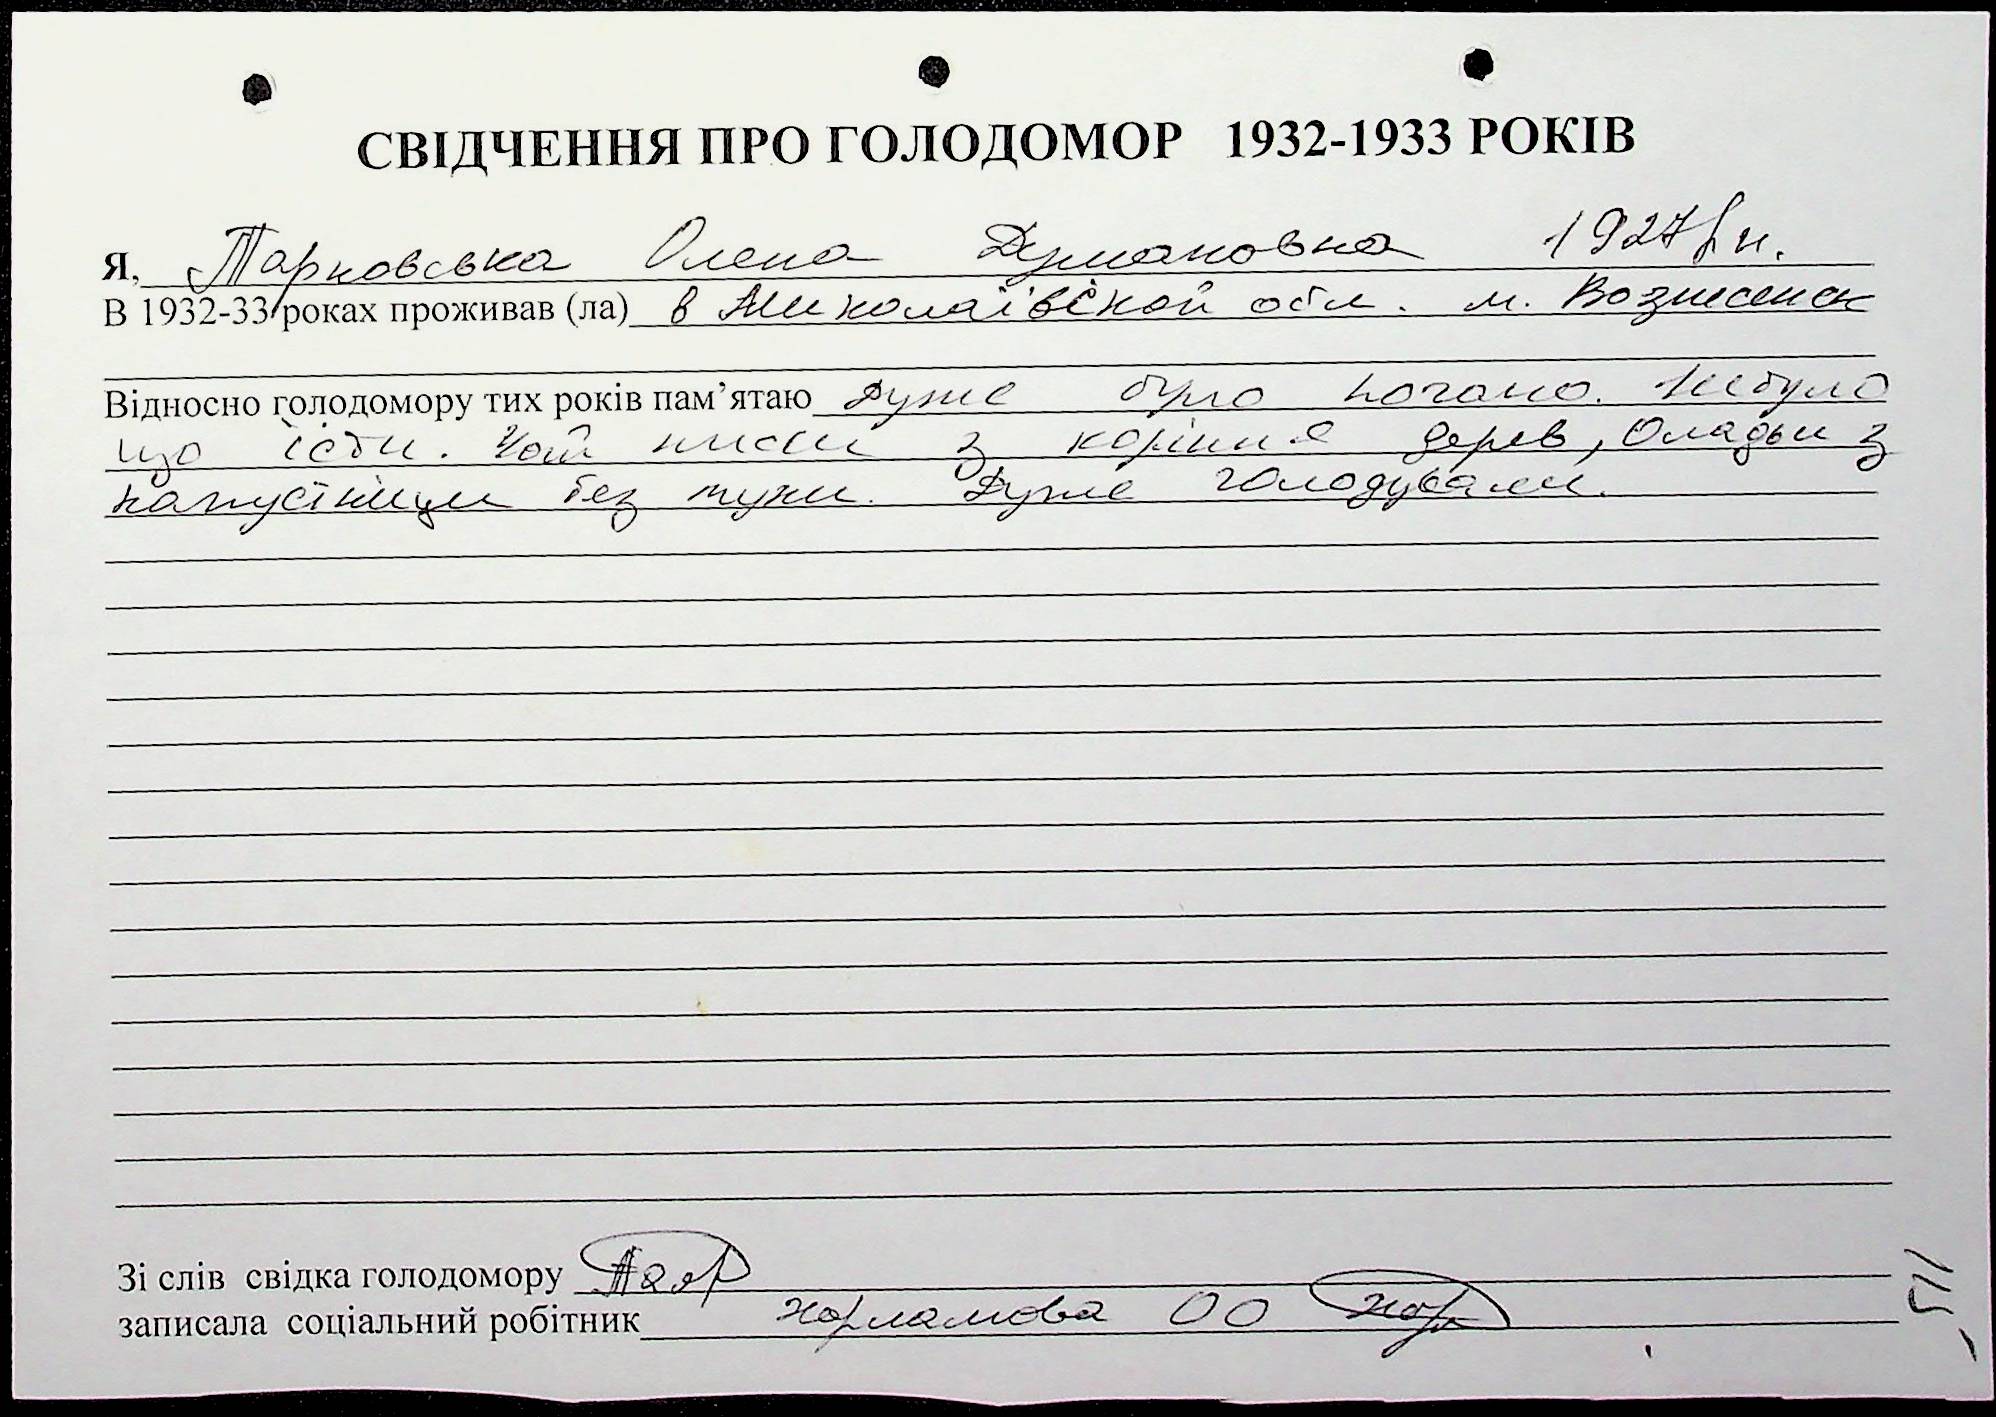 СВІДЧЕННЯ ПРО ГОЛОДОМОР 1932-1933 РОКІВ
Я, Тарковська Олена Думановна 1927 р н.
В 1932-33 роках проживав (ла) в Миколаївской обл. м. Вознесенск
Відносно голодомору тих років пам’ятаю Дуже було погано. Небуло
що їсти. Чай пили з коріння дерев, Оладьи з
капустници без муки. Дуже голодували.
Зі слів свідка голодомору
записала соціальний робітник Харламова О О